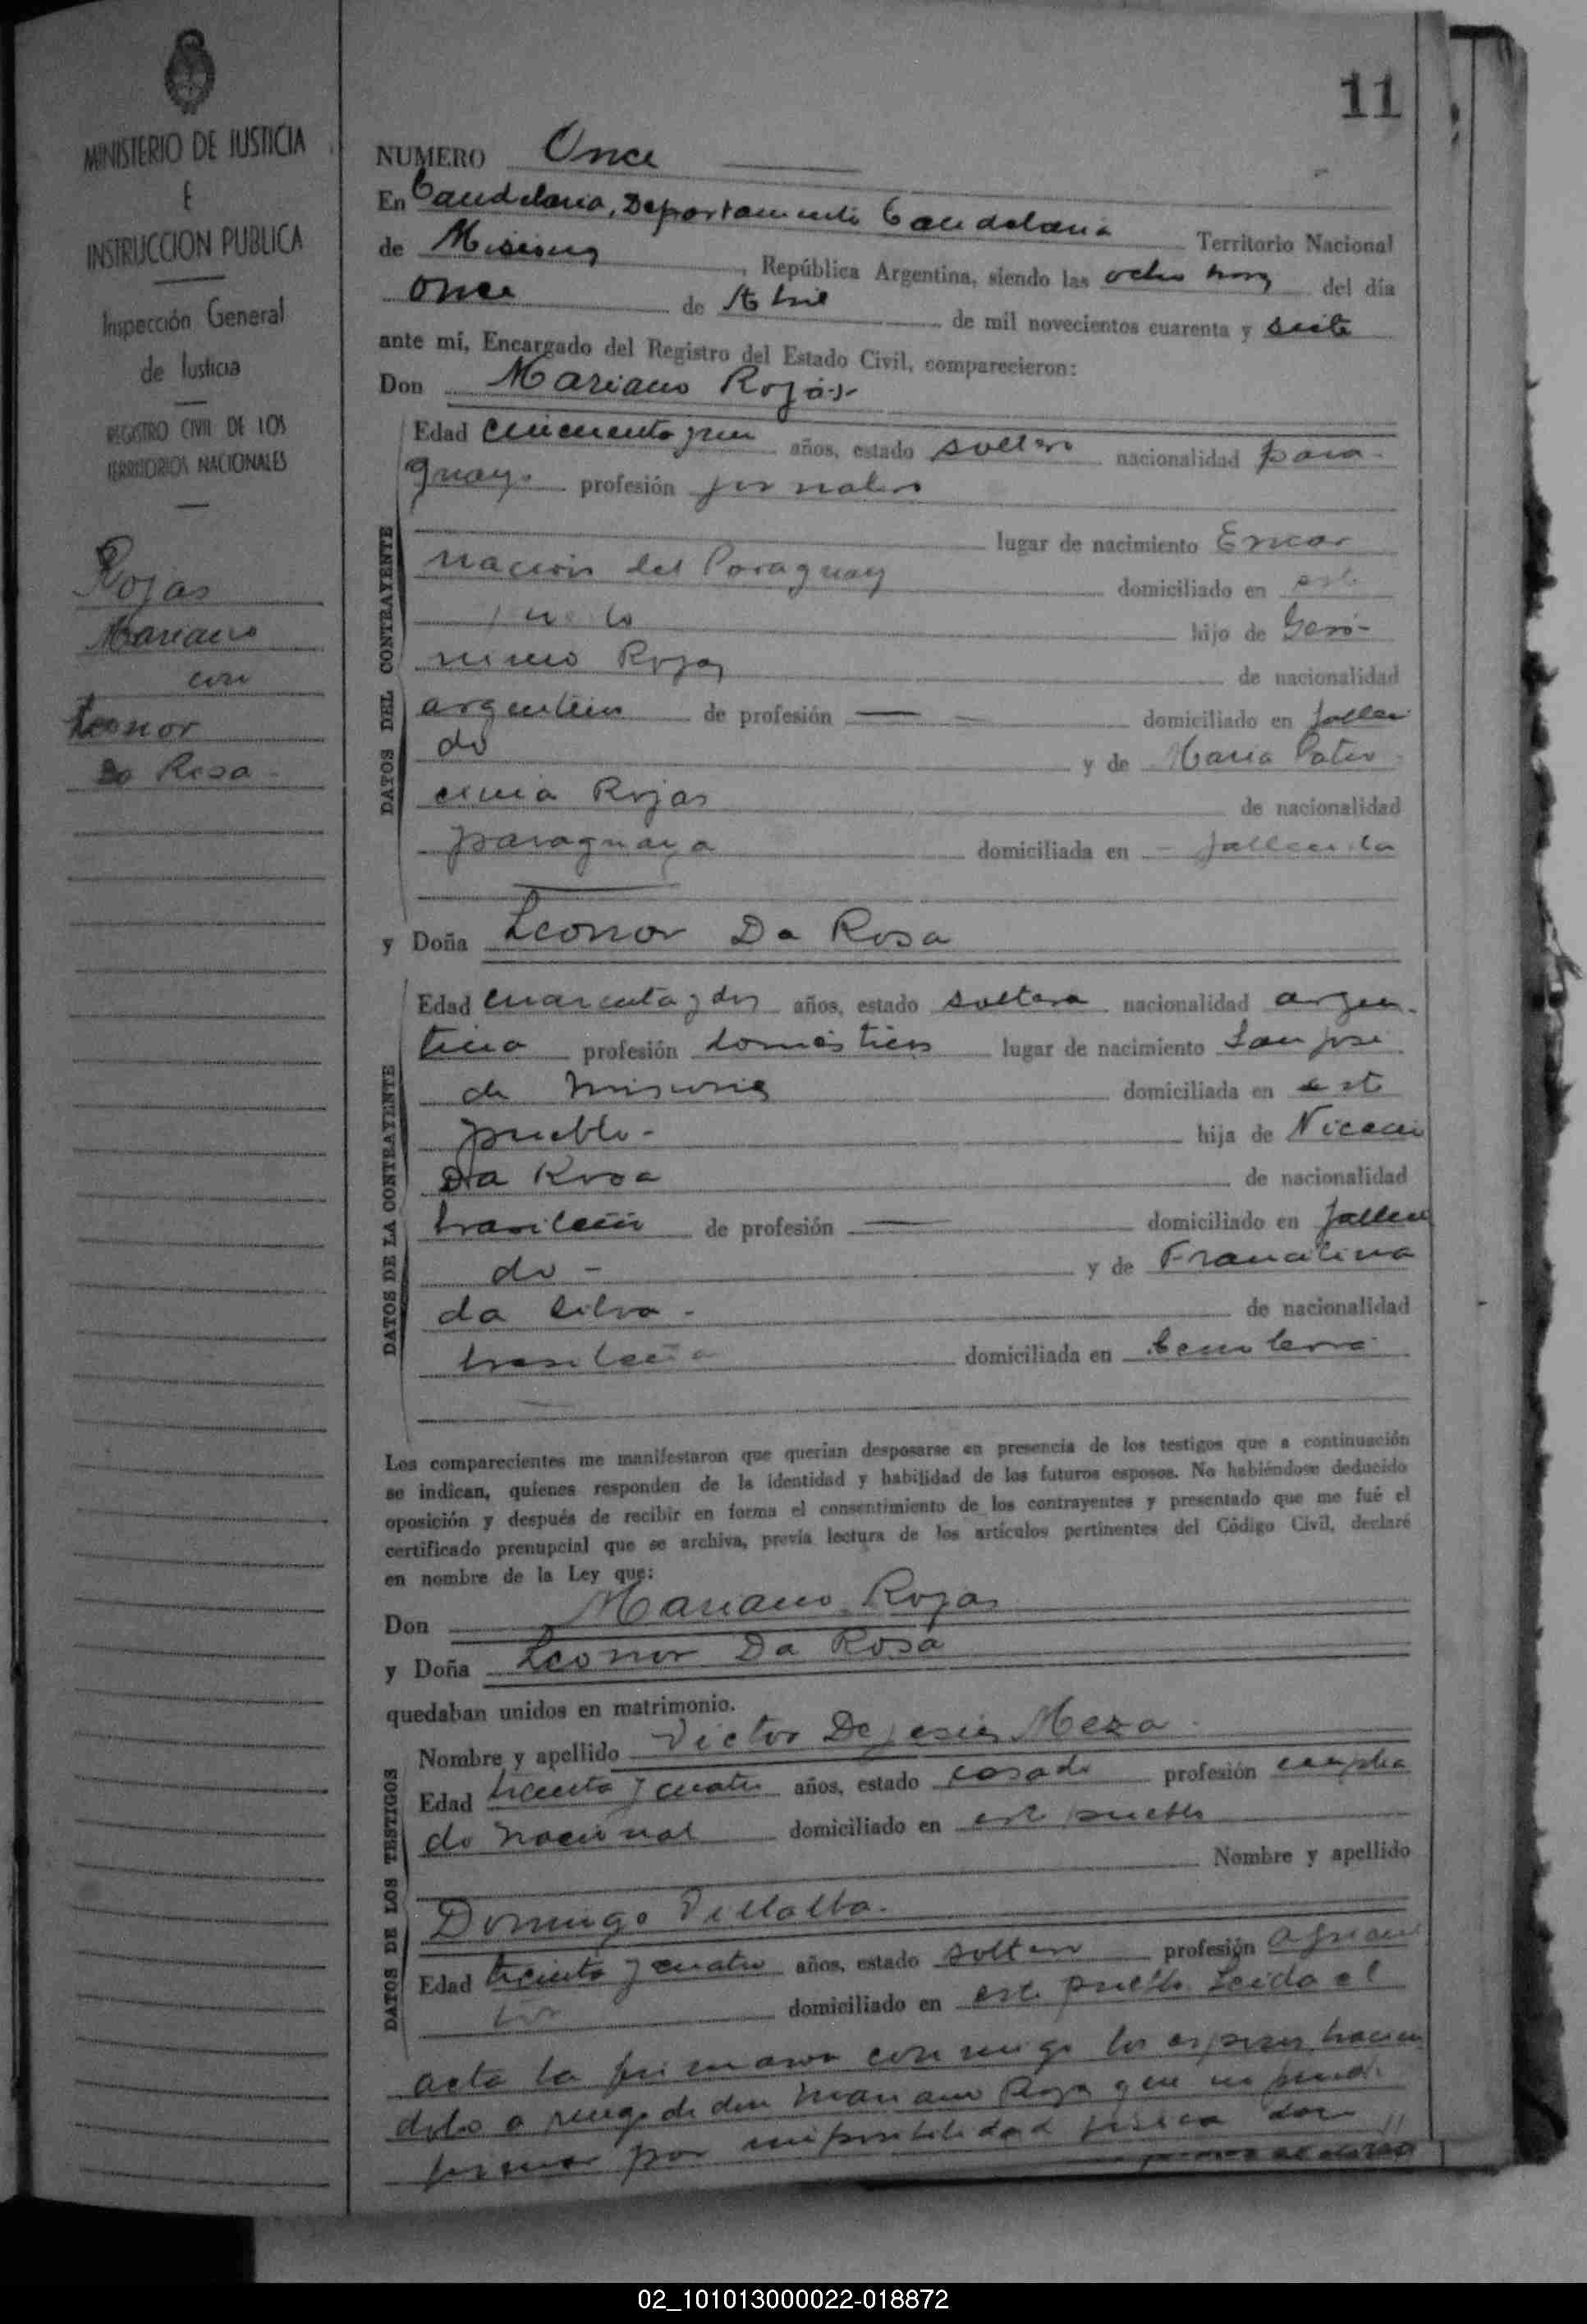 MINISTERIO DE JUSTICIA
E
INSTRUCCION PUBLICA
Inspección General
de Justicia
REGISTRO CIVIL DE LOS
TERRITORIOS NACIONALES
Rojas
Mariano
con
Leonor
Da Rosa
11
NUMERO Once
En Candelaria, Departamento Candelaria Territorio Nacional
de Misiones, República Argentina, siendo las ocho horas del día
once de Abril de mil novecientos cuarenta y siete
ante mí, Encargado del Registro del Estado Civil, comparecieron:
Don Mariano Rojas
DATOS DEL CONTRAYENTE
Edad cincuenta y un años, estado soltero nacionalidad para-
guayo profesión jornalero
lugar de nacimiento Encar
nación del Paraguay domiciliado en este
pueblo hijo de Geró-
nimo Rojas de nacionalidad
argentino de profesión — domiciliado en falleci
do y de Maria Patro
cinia Rojas de nacionalidad
paraguaya domiciliada en - fallecida
y Doña Leonor Da Rosa
DATOS DE LA CONTRAYENTE
Edad cuarenta y dos años, estado soltera nacionalidad argen-
tina profesión domésticos lugar de nacimiento San José
de Misiones domiciliada en este
pueblo- hija de
Da Rosa de nacionalidad
brasileño de profesión — domiciliado en falleci
do - y de Francelina
da Silva - de nacionalidad
brasileña domiciliada en
Los comparecientes me manifestaron que querían desposarse en presencia de los testigos que a continuación
se indican, quienes responden de la identidad y habilidad de los futuros esposos. No habiéndose deducido
oposición y después de recibir en forma el consentimiento de los contrayentes y presentado que me fué el
certificado prenupcial que se archiva, previa lectura de los artículos pertinentes del Código Civil, declaré
en nombre de la Ley que:
Don Mariano Rojas
y Doña Leonor Da Rosa
quedaban unidos en matrimonio.
DATOS DE LOS TESTIGOS
Nombre y apellido Victor De Jesús Meza
Edad treinta y cuatro años, estado casado profesión emplea
do nacional domiciliado en este pueblo
Nombre y apellido
Domingo Villalba.
Edad treinta y cuatro años, estado soltero profesión agricul
tor domiciliado en este pueblo Leida el
acta la firmaron conmigo los esposos hacien
dolo a ruego de don Mariano Rojas que no puede
firmar por imposibilidad física don
02_101013000022-018872